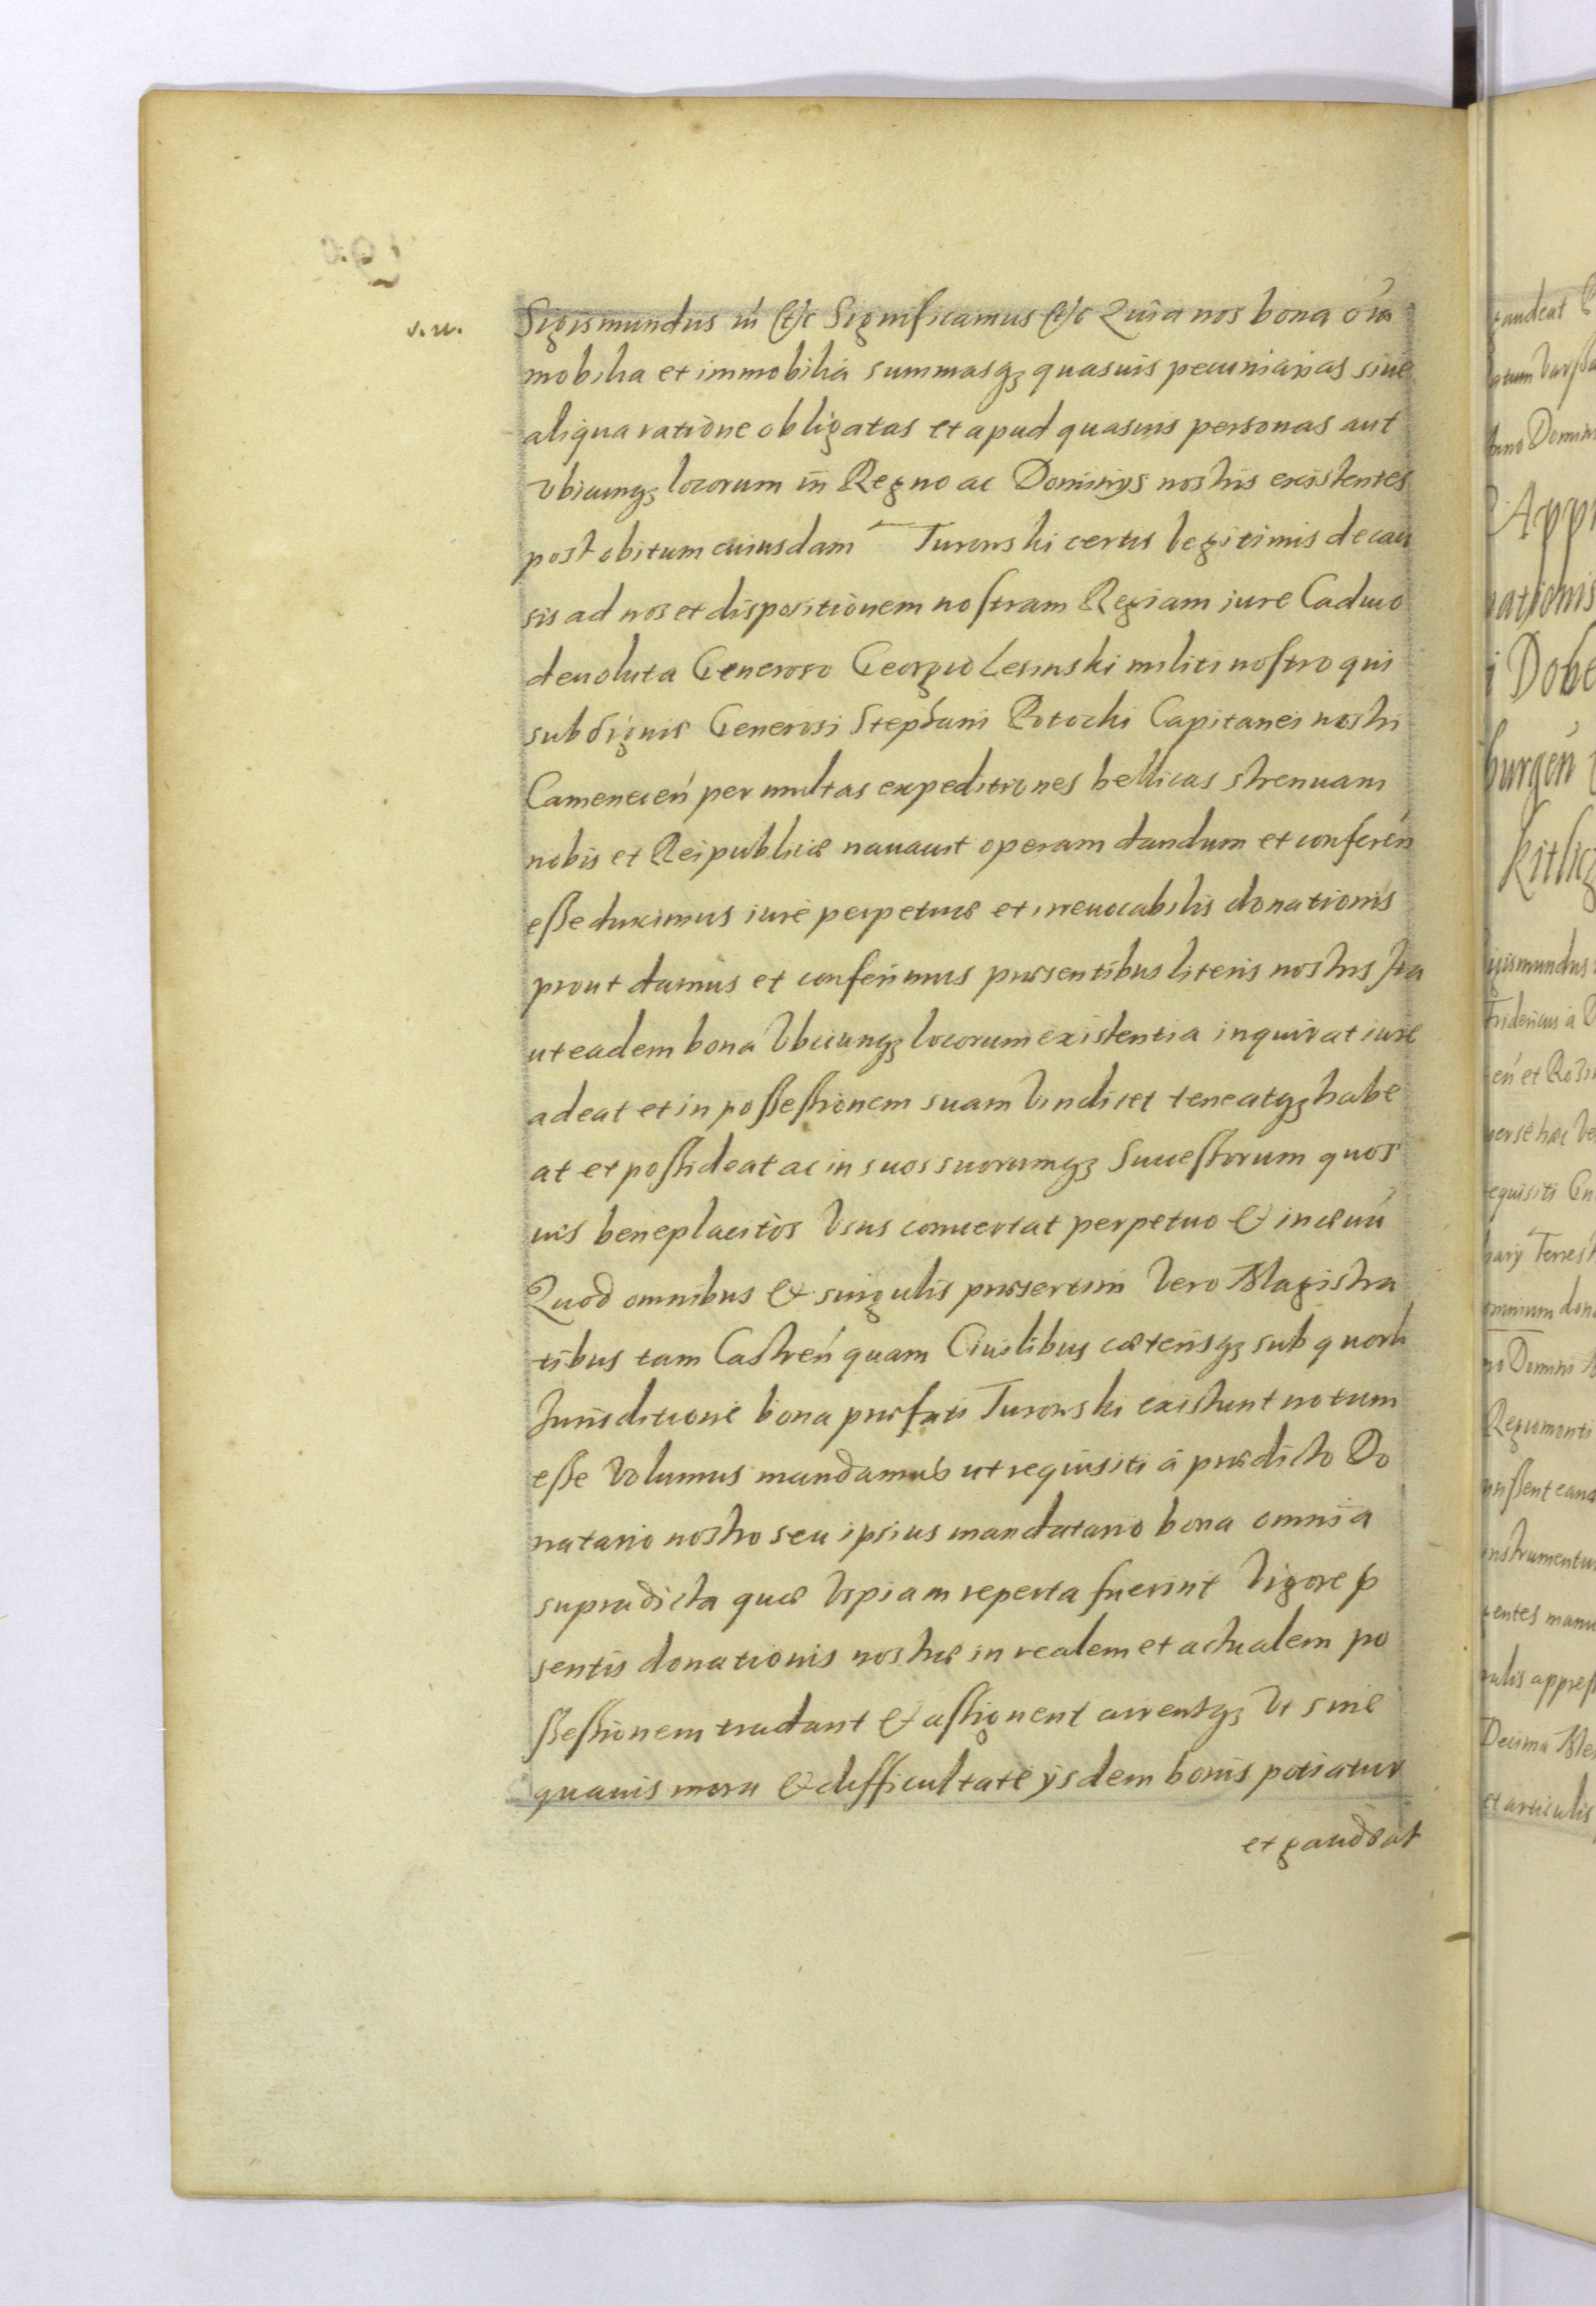 s.n.
Sigismundus iij &c Significamus &c Quia nos bona oīa
mobilia et immobilia summasqꝫ quasuis pecuniarias siue
aliqua ratione obligatas et apud quasuis personas aut
Vbicunqꝫ locorum in Regno ac Dominijs nostris existentes
post obitum cuiusdam Turowski certis legitimis de cau
sis ad nos et dispositionem nostram Regiam iure Caduco
deuoluta Generoso Georgio Lesinski militi nostro qui
sub signis Generosi Stephani Potocki Capitanei nostri
Camenecen̄ per multas expeditiones bellicas strenuam
nobis et Reipublicæ nauauit operam dandum et conferen̄
esse duximus iure perpetuæ et irreuocabilis donationis
prout damus et conferimus præsentibus literis nostris Ita
ut eadem bona Vbicunqꝫ locorum existentia inquirat iure
adeat et in possessionem suam Vindicet teneatqꝫ habe
at et possideat ac in suos suorumqꝫ Successorum quos
uis beneplacitos Vsus conuertat perpetuo & in æuū
Quod omnibus & singulis præsertim Vero Magistra
tibus tam Castren̄ quam Ciuilibus cæterisqꝫ sub quorū
Jurisditione bona præfati Turowski existunt notum
esse Volumus mandamus ut requisiti á prædicto Do
natario nostro seu ipsius mandatario bona omnia
supradicta quæ Vspiam reperta fuerint Vigore p̄
sentis donationis nostræ in realem et actualem po
ssessionem tradant & assignent curentqꝫ Vt sine
quauis mora & difficultate ijsdem bonis potiatur
et gaudeat
gaudeat
Domini
Appr
nationis
i Dobe
burgen̄
Kitlicz
Decima
et articulis